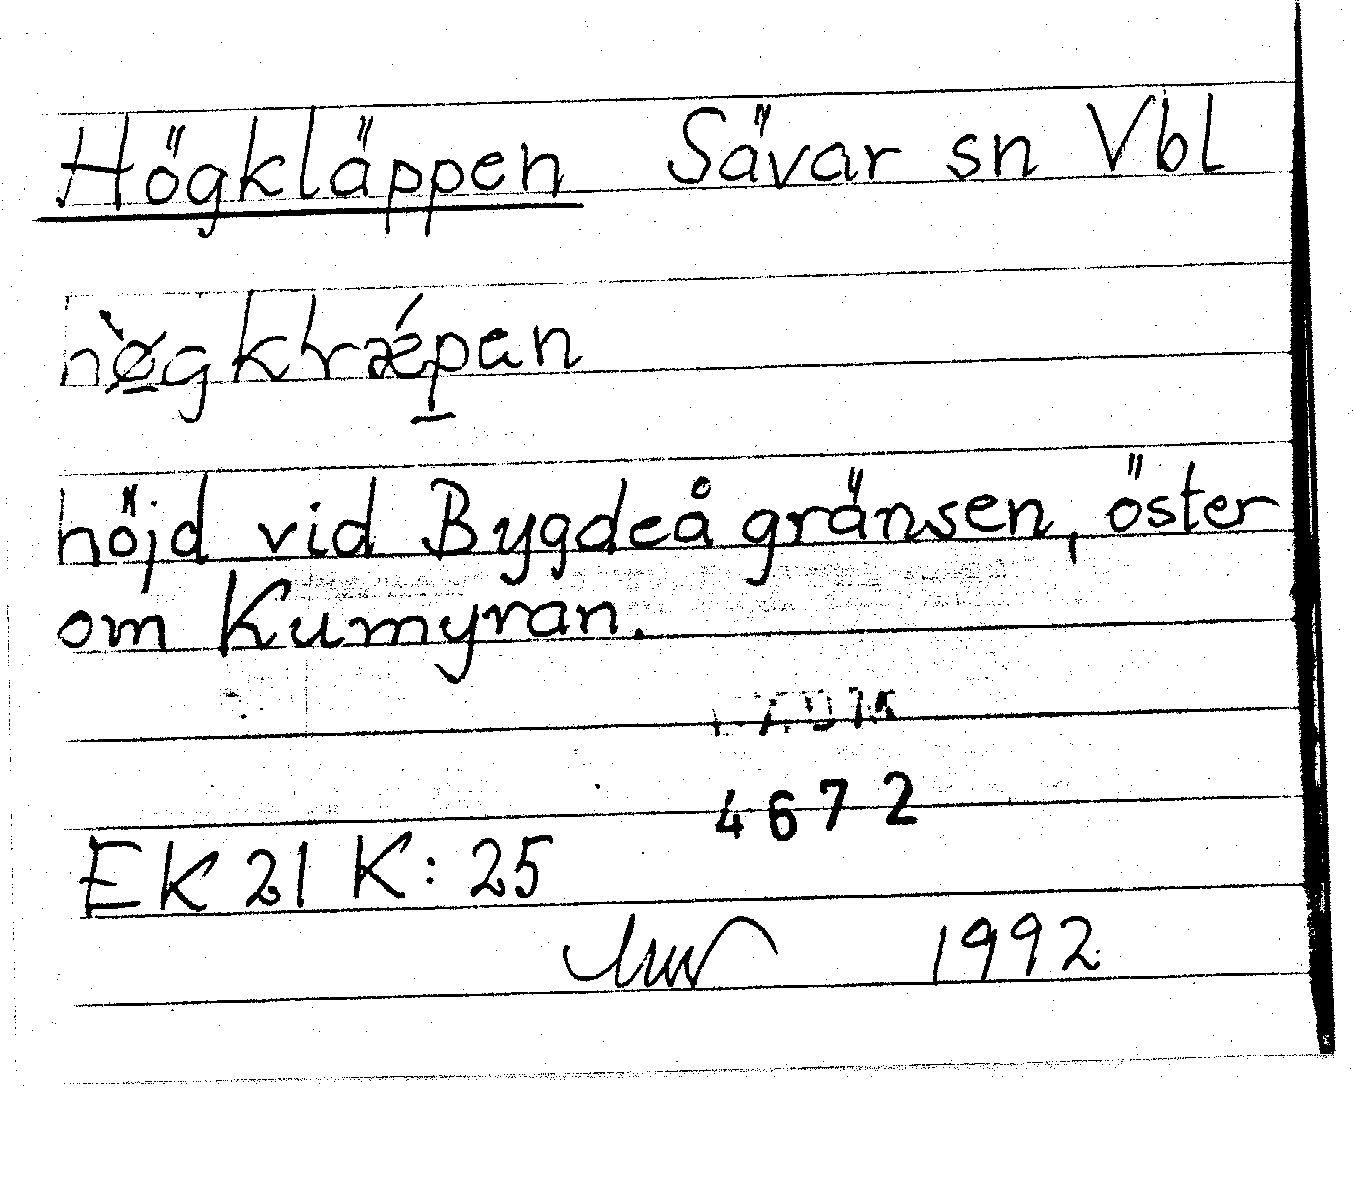 Högkläppen Sävar sn Vbl
hø̀gkhrǽpen
höjd vid Bygdeå gränsen, öster
om Kumyran.
4672
EK 21 K: 25
1992